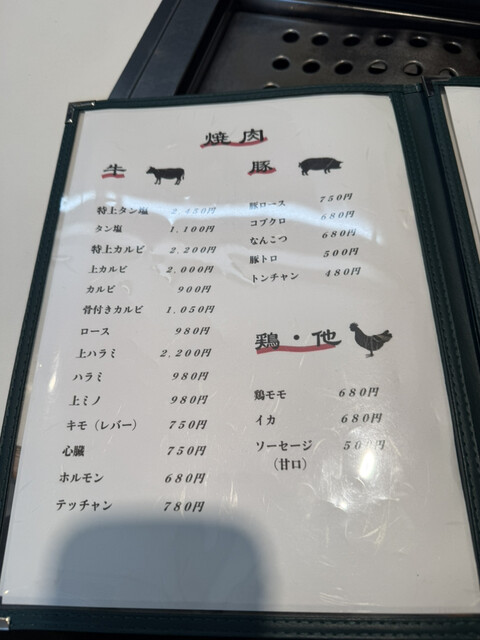 焼肉
牛
特上タン塩 2,450円
タン塩 1,100円
特上カルビ 2,200円
上カルビ 2,000円
カルビ 900円
骨付きカルビ 1,050円
ロース 980円
上ハラミ 2,200円
ハラミ 980円
上ミノ 980円
キモ（レバー） 750円
心臓 750円
ホルモン 680円
テッチャン 780円
豚
豚ロース 750円
コブクロ 680円
なんこつ 680円
豚トロ 500円
トンチャン 480円
鶏・他
鶏モモ 680円
イカ 680円
ソーセージ 500円
（甘口）